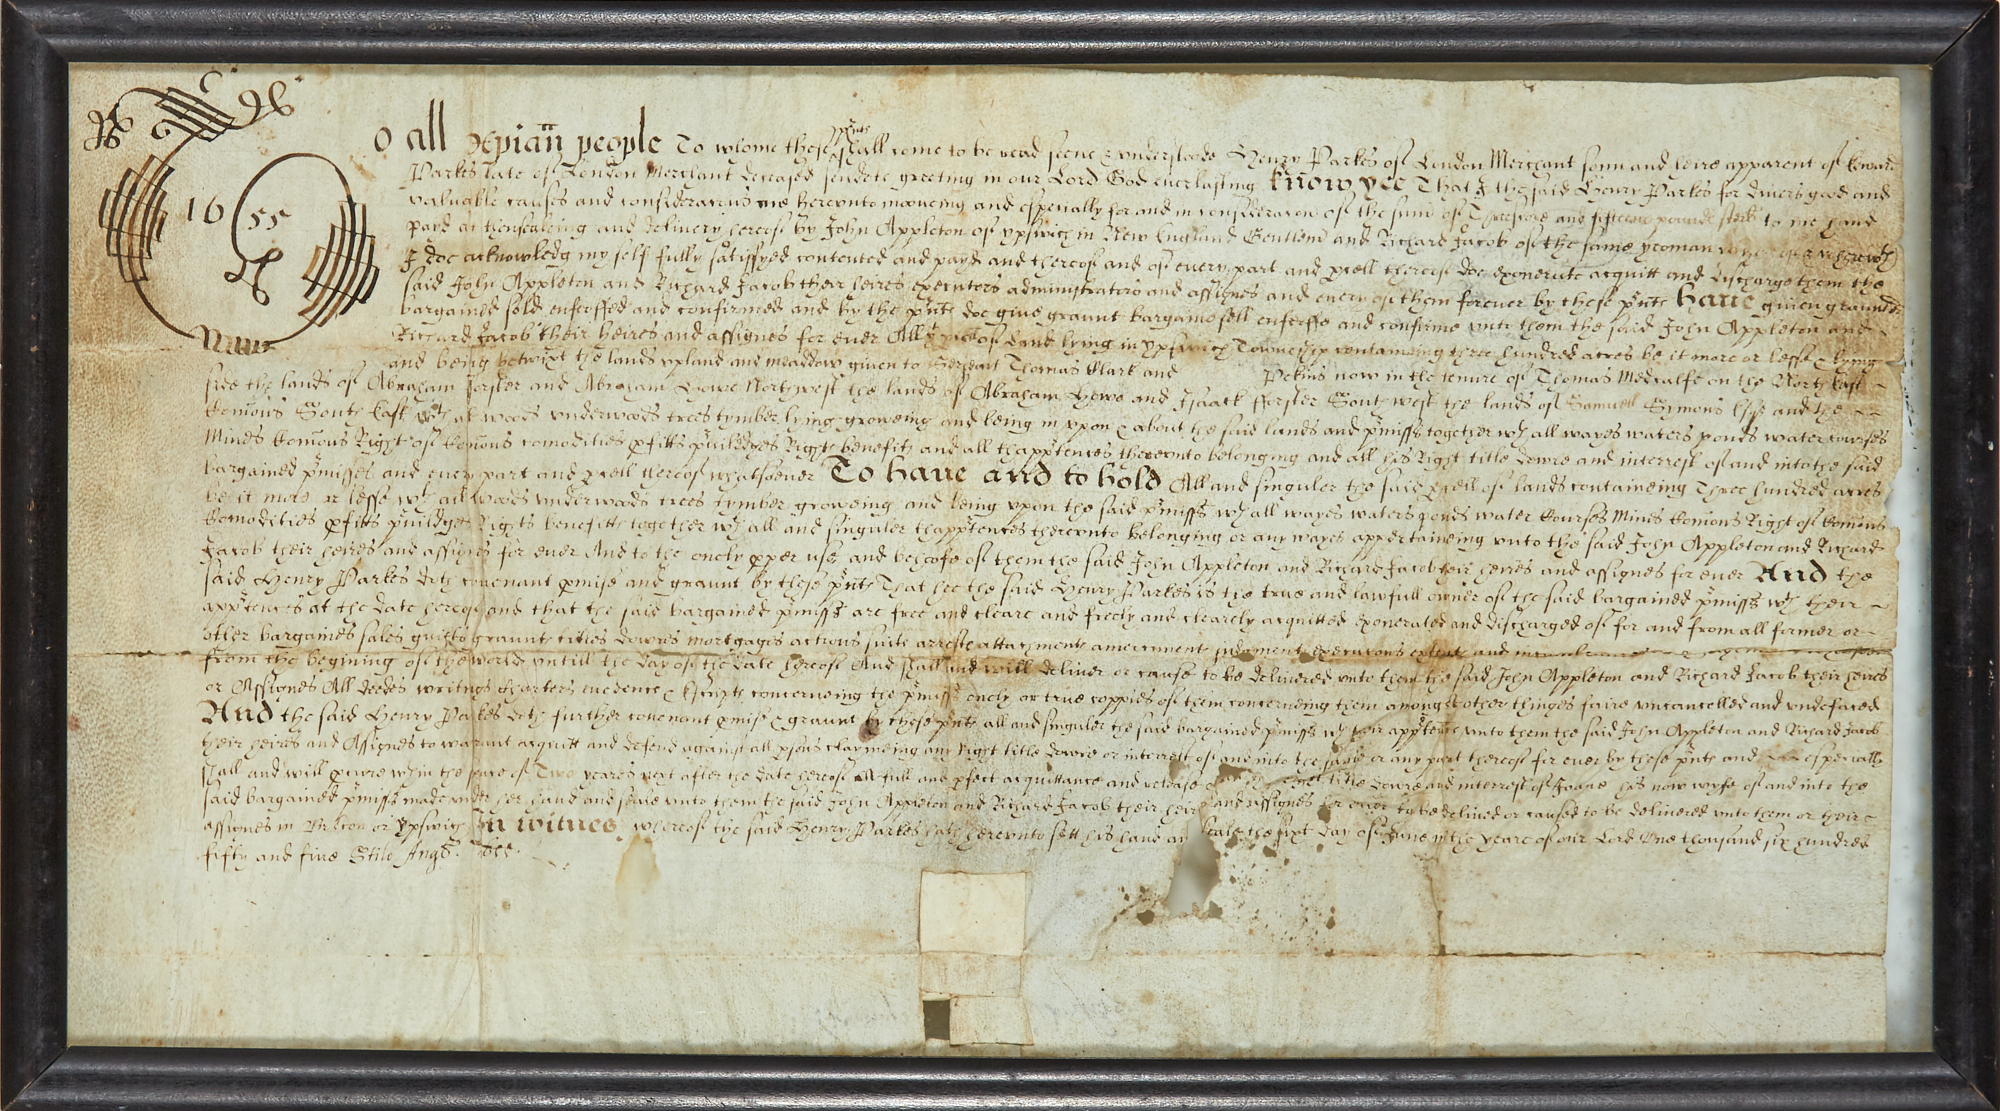 1655
o all xpian people To whome these pnts shall come to be read seene & understoode Henry Parkes of London Merchant sonn and heire apparent of Edward
Parkes late of London Merchant deceased sendeth greeting in our Lord God everlasting Know yee That I the said Henry Parkes for divers good and
valuable causes and consideracons me hereunto moveing and especially for and in consideracon of the sum of Threescore and fifteene pounds sterl to me hand
payd at thensealeing and delivery hereof by John Appleton of Ypswich in New England Gentlem and Richard Jacob of the same yeoman wherewth
I doe acknowledg my self fully satisfyed contented and payd and thereof and of every part and pcell thereof doe exonerate acquitt and discharge them the
said John Appleton and Richard Jacob their heires executors administrators and assignes and every of them forever by these pnts have given graunted
bargained sold enfeoffed and confirmed and by the pnts doe give graunt bargaine sell enfeoffe and confirme unto them the said John Appleton and
Richard Jacob their heires and assignes for ever All land lying in Ypswich Towneship containeing three hundred acres be it more or lesse & lying
and being betwixt the lands upland and meaddow given to Serjeant Thomas Clark and Pekins now in the tenure of Thomas Medcalfe on the North East
side the lands of Abraham Forster and Abraham Howe Northwest the lands of Abraham Howe and Isaack Forster Southwest the lands of Samuell Symons Esqr and the
Comons South East wth all woods underwoods trees tymber lying groweing and being in upon & about the said lands and pmisss together wth all wayes waters ponds water courses
Mines Comons Right of Comons comodities pfitts priviledges Rights benefitts and all thapptences thereunto belonging and all his Right title dowre and interrest of and into the said
bargained pmisses and every part and pcell thereof whatsoever To have and to hold All and singuler the said pcell of lands containeing Three hundred acres
be it more or lesse wth all woods underwoods trees tymber groweing and being upon the said pmisss wth all wayes waters ponds water Courses Mines Comons Right of Comons
Comodities pfitts priviledges Rights benefitts together wth all and singuler thapptences thereunto belonging or any wayes appertaineing unto the said John Appleton and Richard
Jacob their heires and assignes for ever And to the onely pper use and behoofe of them the said John Appleton and Richard Jacob their heires and assignes for ever And the
said Henry Parkes doth covenant pmise and graunt by these pnts That hee the said Henry Parkes is the true and lawfull owner of the said bargained pmisss wth their
apptences at the date hereof and that the said bargained pmisss are free and cleare and freely and clearely acquitted exonerated and discharged of for and from all former or
other bargaines sales guifts graunts titles dowres mortgages actions suite arreste attachments amerciment judgments executions extents and
from the begining of the world untill the day of the date hereof And shall and will deliver or cause to be delivered unto them the said John Appleton and Richard Jacob their heires
or Assignes All deedes writings charters evidence & escripts concerneing the pmisss onely or true coppies of them concerneing them amongst other thinges faire uncancelled and undefaced
And the said Henry Parkes doth further covenant pmise & graunt by these pnts all and singuler the said bargained pmisss wth their apptences unto them the said John Appleton and Richard Jacob
their heires and Assignes to warrant acquitt and defend against all psons claymeing any right title dowre or interest of and into the same or any part thereof for ever by these pnts and especially
shall and will pcure wthin the space of Two yeares next after the date hereof A full and pfect acquittance and release title dowre and interest of Joane his now wyfe of and into the
said bargained pmisss made under her hand and seale unto them the said John Appleton and Richard Jacob their heires and assignes for ever to be delivered or caused to be delivered unto them or their
assignes in Boston or Ypswich In witnes whereof the said Henry Parkes hath hereunto sett his hand and seale the sixt day of June in the yeare of our Lord One thousand six hundred
fifty and five Stilo Angl.